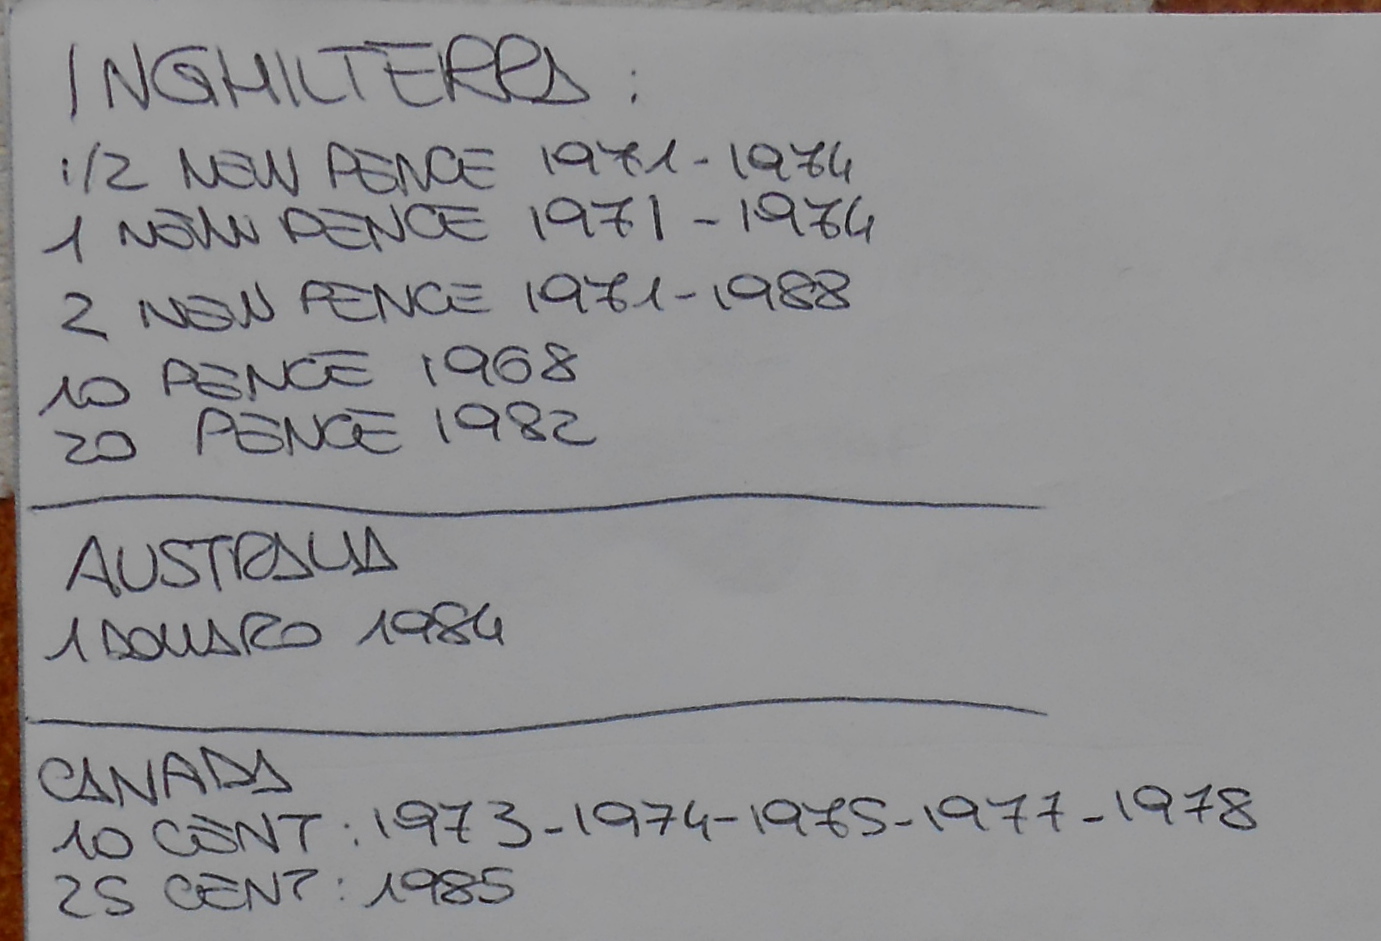 INGHILTERRA:
1/2 NEW PENCE 1971-1974
1 NEW PENCE 1971-1974
2 NEW PENCE 1971-1988
10 PENCE 1968
20 PENCE 1982
AUSTRALIA
1 DOLLARO 1984
CANADA
10 CENT: 1973-1974-1975-1977-1978
25 CENT: 1985